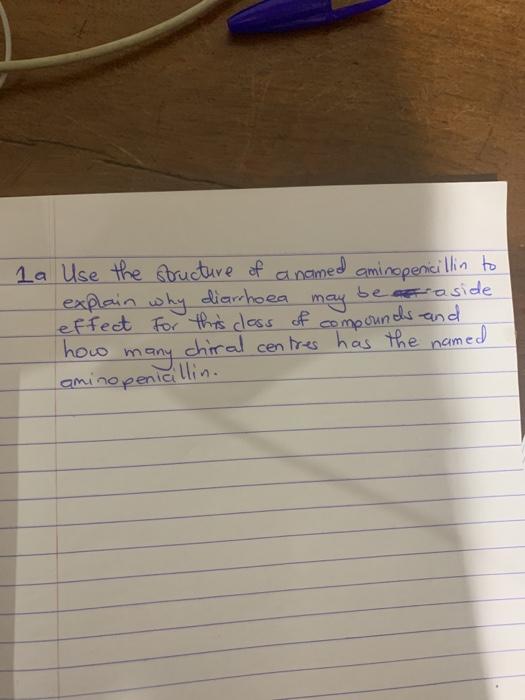 1a Use the structure of a named aminopenicillin to
explain why diarrhoea may be a side
effect for this class of compounds and
how many chiral centres has the named
aminopenicillin.